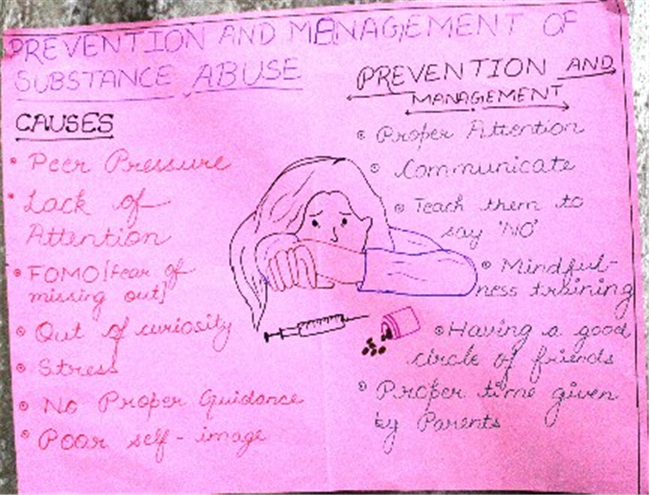 PREVENTION AND MANAGEMENT OF
SUBSTANCE ABUSE
CAUSES
• Peer Pressure
• Lack of
Attention
• FOMO [fear of
missing out]
• Out of curiosity
• Stress
• No Proper Guidance
• Poor self-image
PREVENTION AND
MANAGEMENT
• Proper Attention
• Communicate
• Teach them to
say 'NO'
• Mindful-
ness training
• Having a good
circle of friends
• Proper time given
by Parents